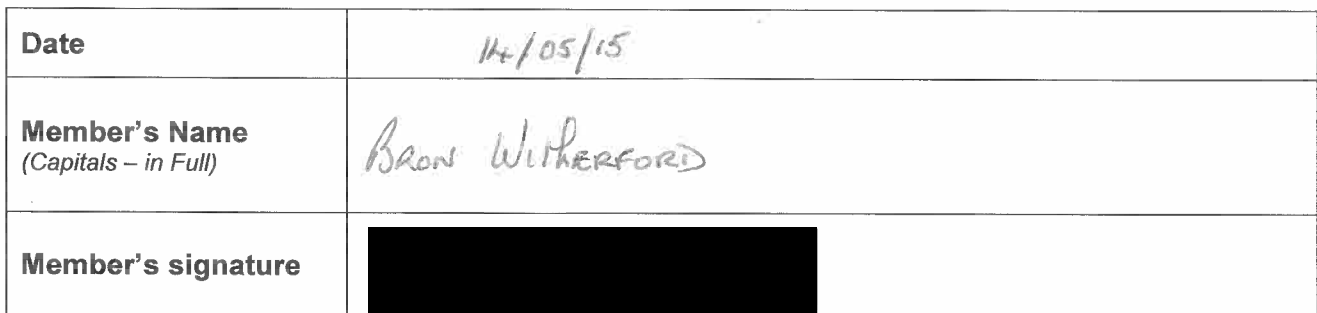 Date 14/05/15
Member's Name
(Capitals – in Full) BRON WITHERFORD
Member's signature